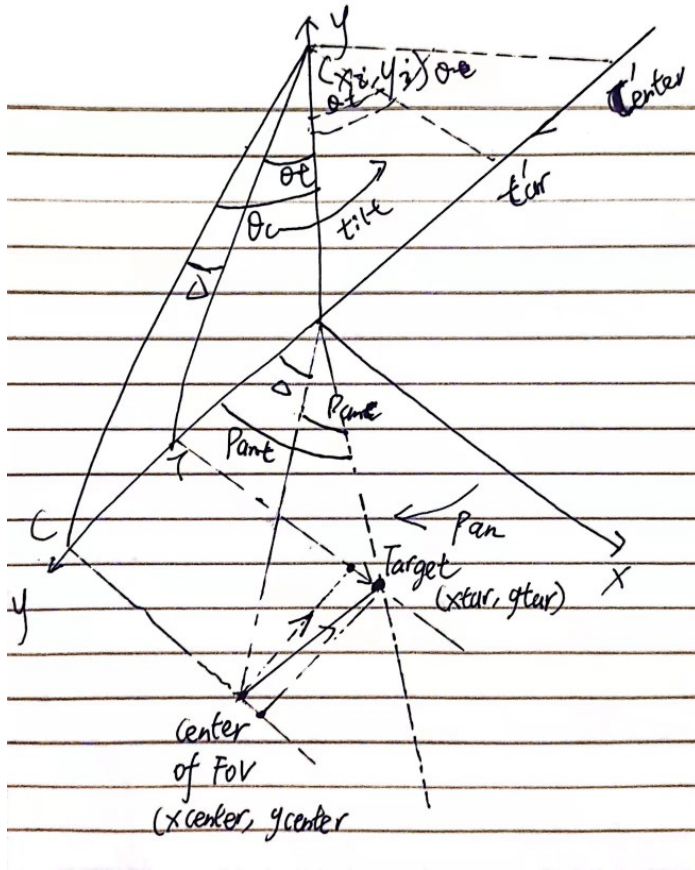 y
(xi, yi) θe
θt
C'enter
t'ar
θt
θc
tilt
Δ
Δ
Pant
T
C
Pan
y
Target
X
(xtar, ytar)
center
of FoV
(xcenter, ycenter